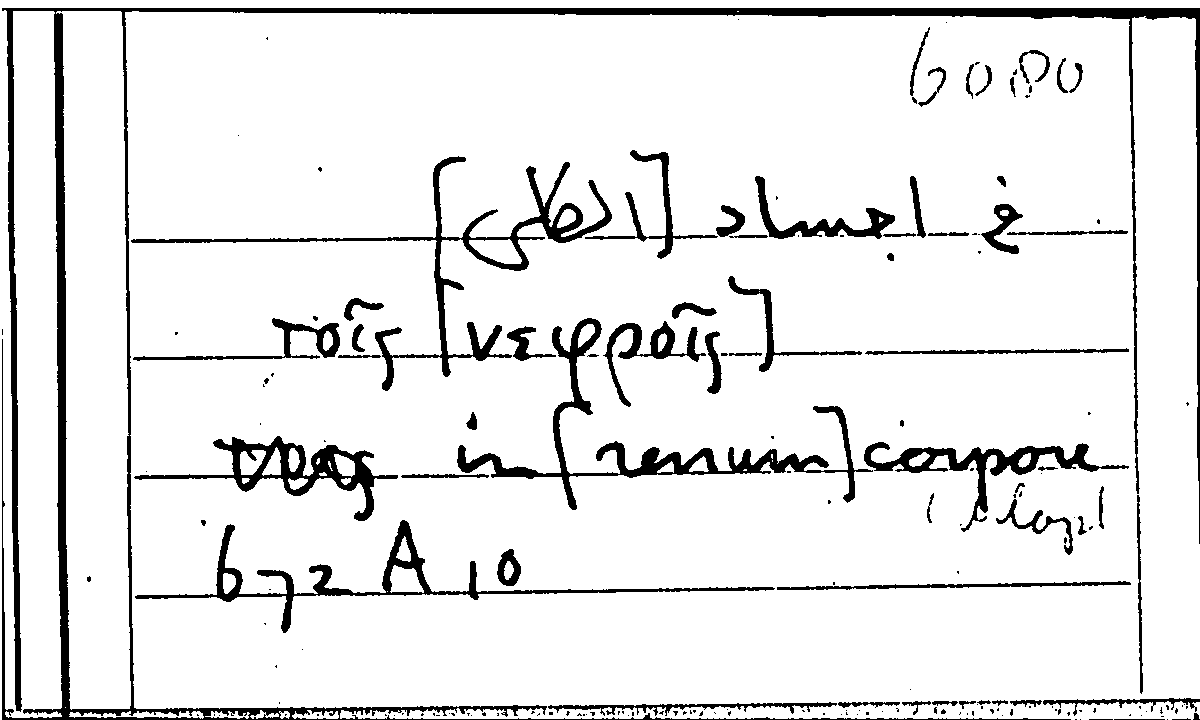 6080
في اجساد [الكلى]
τοῖς [νεφροῖς]
in [renum] corpore
672 A 10